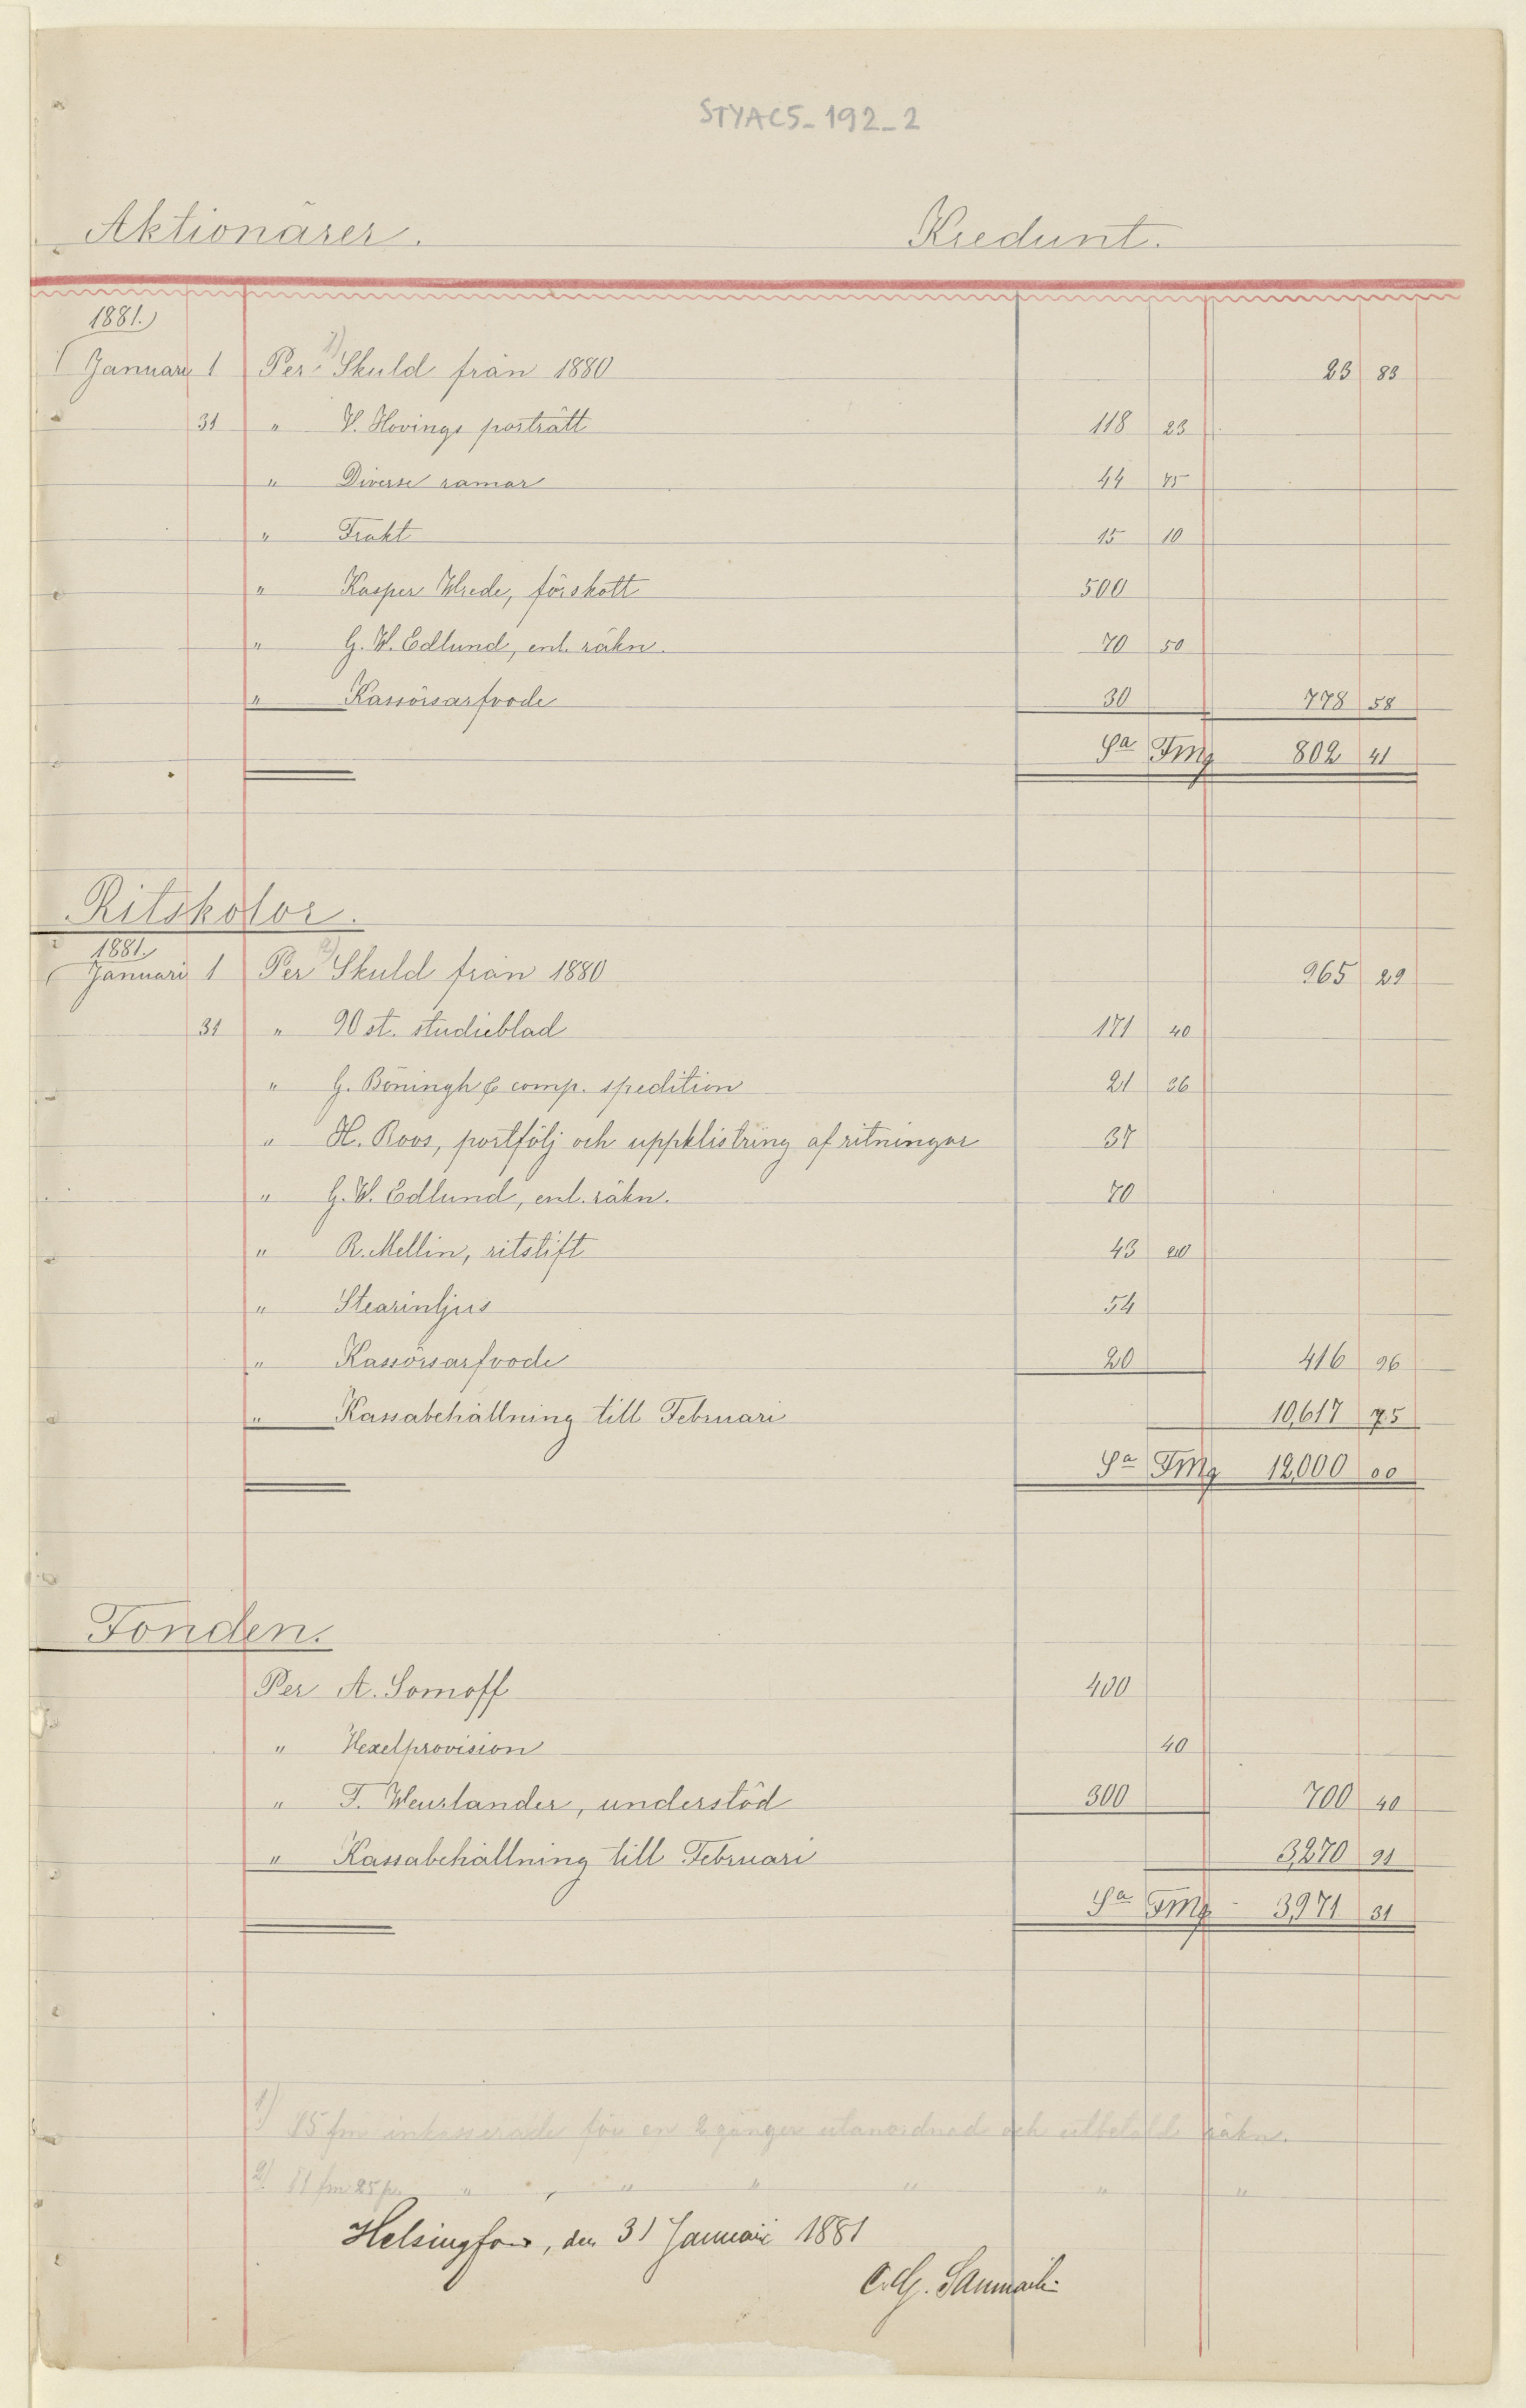 STYACS_192_2
Aktionärer. Kredunt.
1881.
Januari 1 Per 1) Skuld från 1880 23 83
31 " V. Hovings porträtt 118 23
" Diverse ramar 44 75
" Frakt 15 10
" Kasper Wrede, förskott 500
" G. W. Edlund, enl. räkn. 70 50
" Kassörsarfvode 30 778 58
Sa Fmg 802 41
Ritskolor.
1881.
Januari 1 Per 2) Skuld från 1880 965 29
31 " 90 st. studieblad 171 40
" G. Böningh & comp. spedition 21 36
" H. Roos, portfölj och uppklistring af ritningar 37
" G. W. Edlund, enl. räkn. 70
" R. Mellin, ritstift 43 20
" Stearinljus 54
" Kassörsarfvode 20 416 96
" Kassabehållning till Februari 10,617 75
Sa Fmg 12,000 00
Fonden.
Per A. Somoff 400
" Vexelprovision 40
" T. Weurlander, understöd 300 700 40
" Kassabehållning till Februari 3,270 91
Sa Fmg 3,971 31
1) 15 fm inkasserade för en 2 gånger utanordnad och utbetald räkn.
2) 11 fm 25 p. " " " " " " "
Helsingfors, den 31 Januari 1881